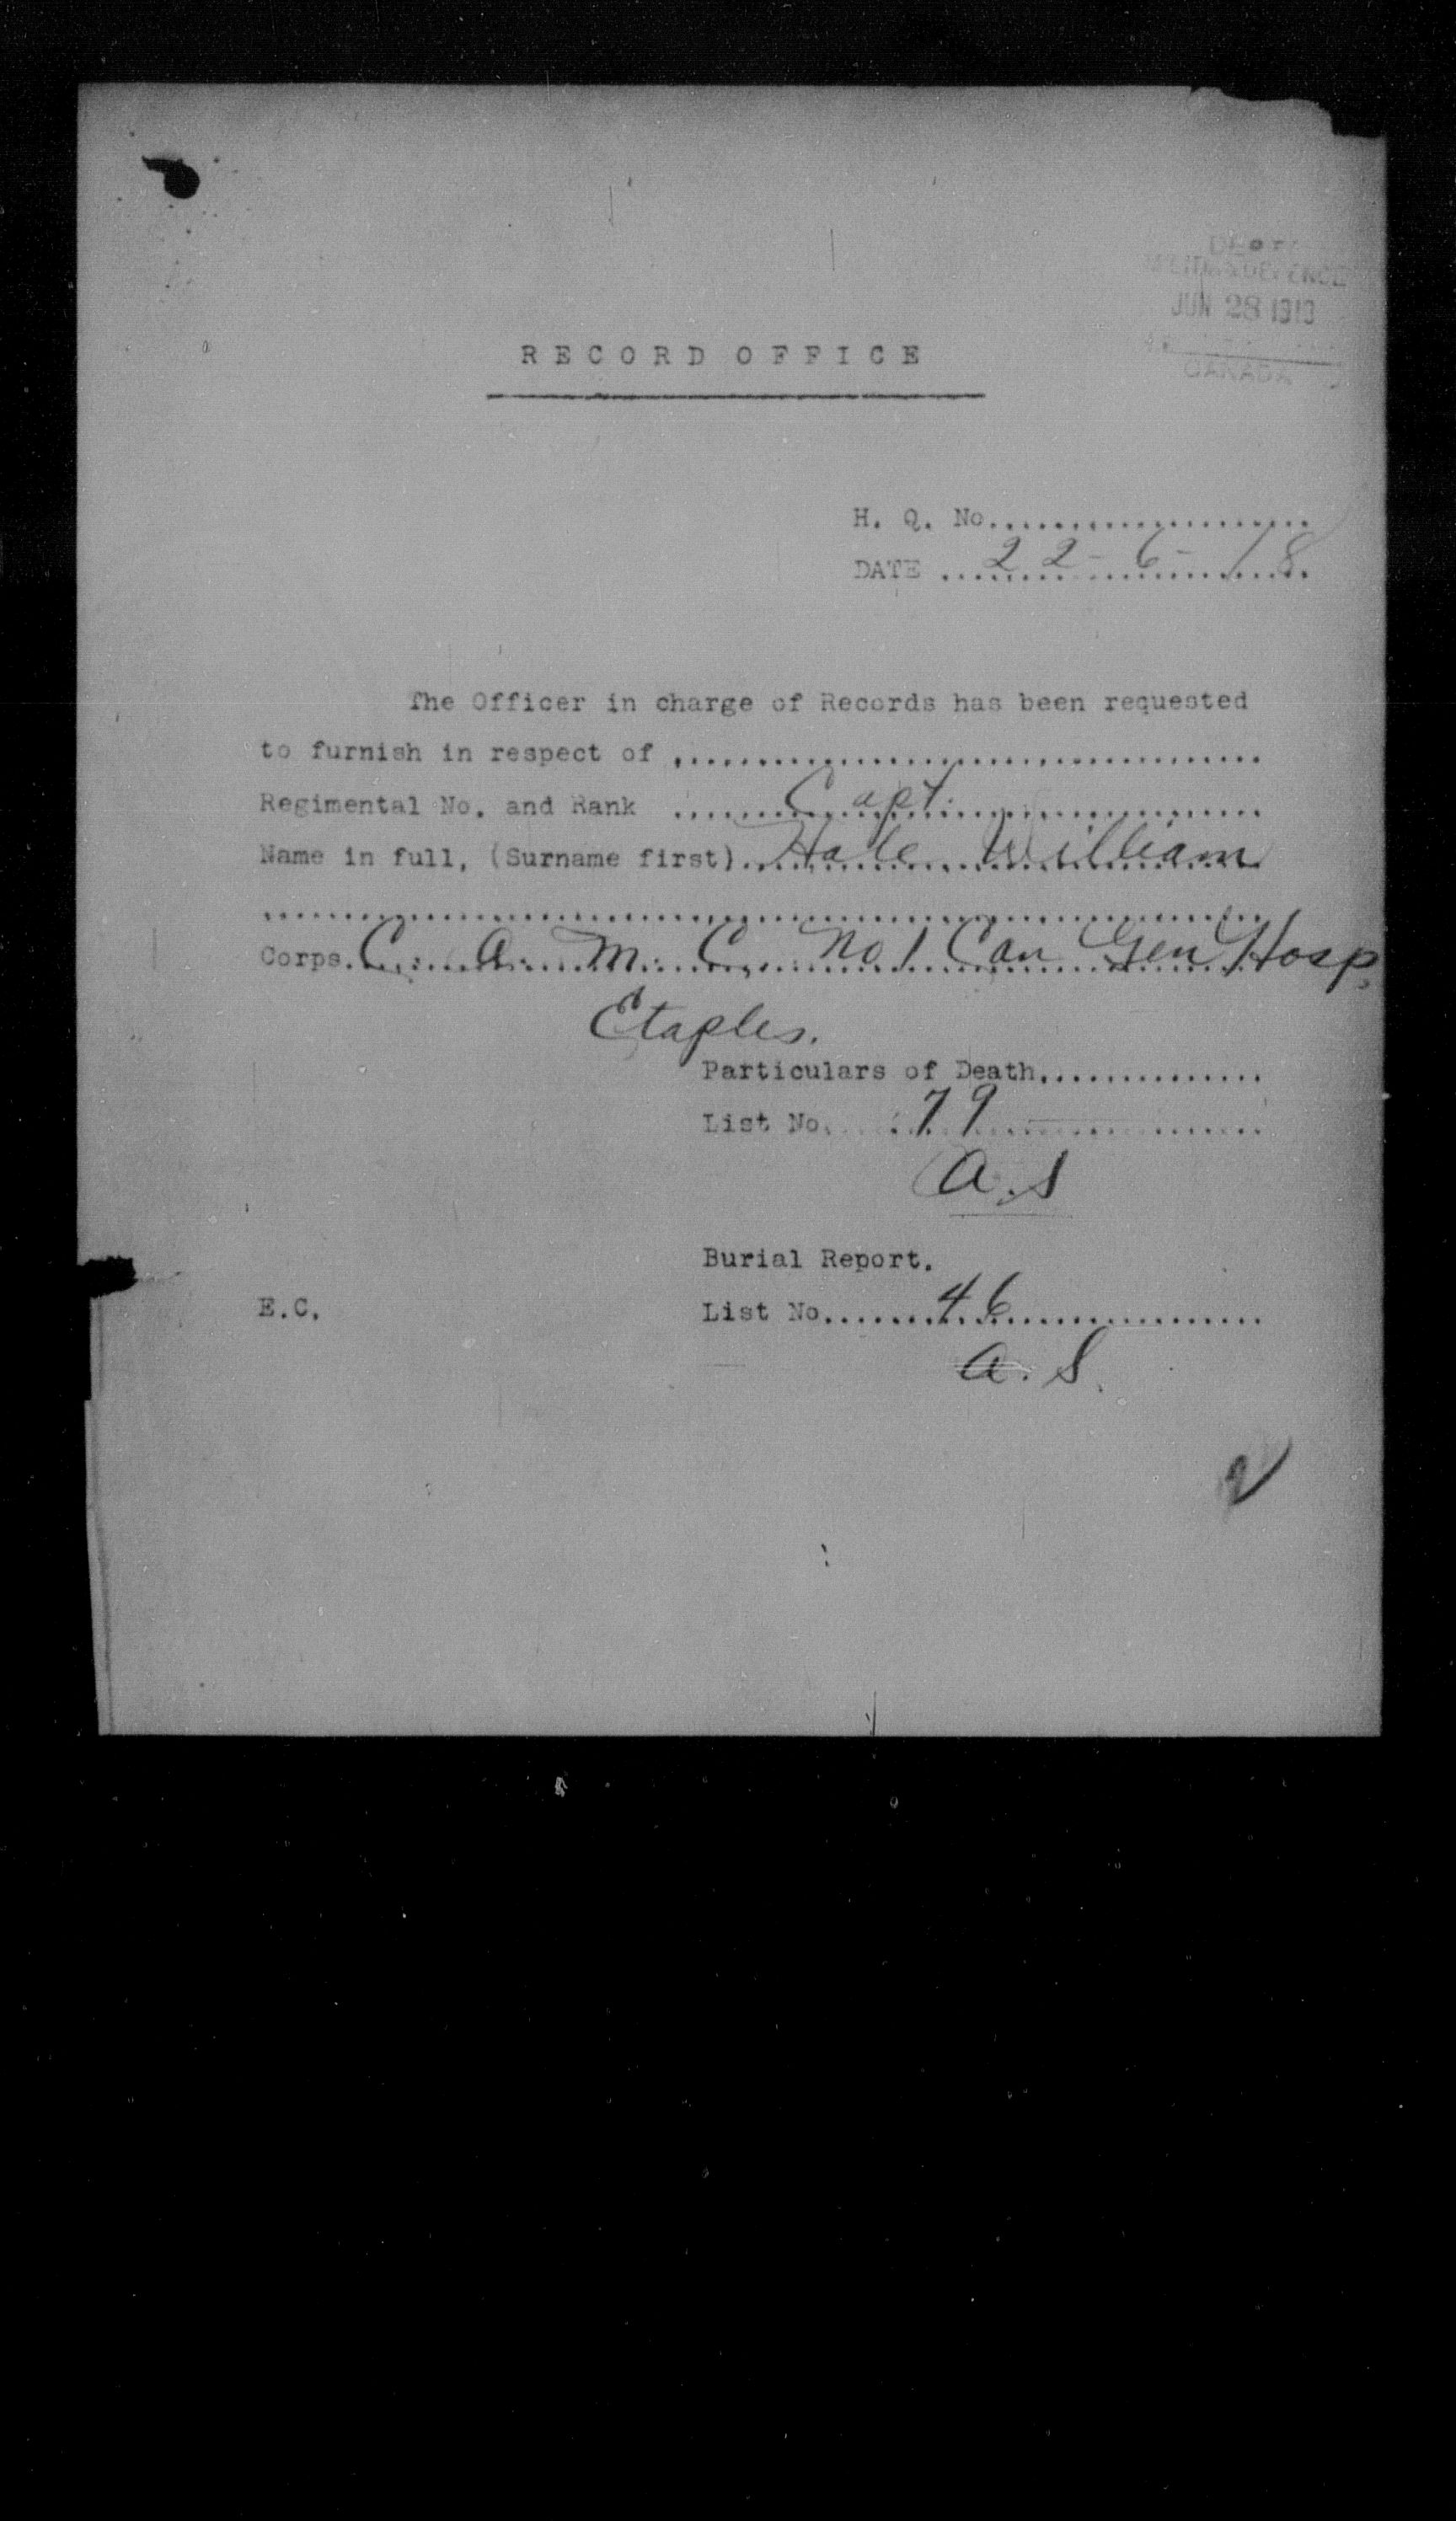 DEPT
MILITIA & DEFENCE
JUN 28 1918
CANADA
RECORD OFFICE
H. Q. No....................
DATE ...22-6-18...
The Officer in charge of Records has been requested
to furnish in respect of ....................................
Regimental No. and Rank ......Capt.....................
Name in full, (Surname first)..Hale William
............................................................
Corps. C. A. M. C. No 1 Can Gen Hosp.
Etaples.
Particulars of Death..............
List No. 79
A.S
Burial Report.
E.C.
List No.......46.................
A.S.